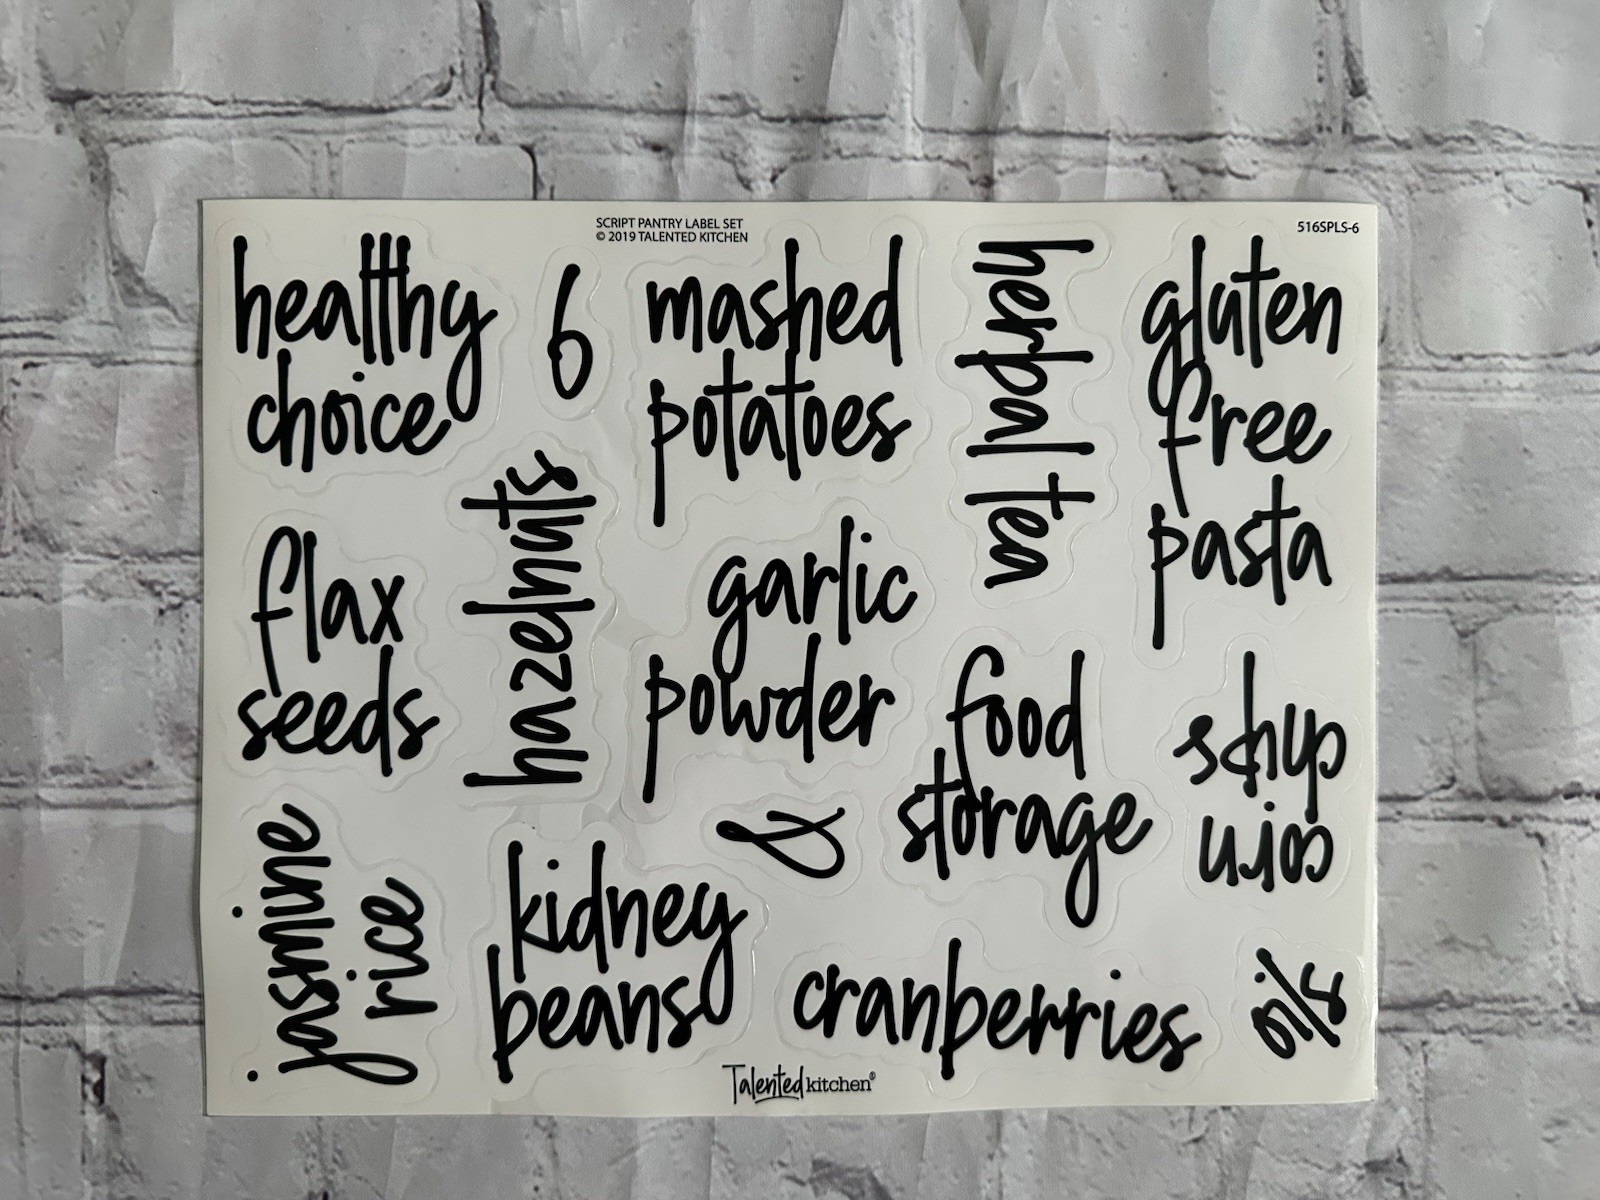 SCRIPT PANTRY LABEL SET
© 2019 TALENTED KITCHEN
516SPLS-6
healthy
choice
6
mashed
potatoes
herbal tea
gluten
free
pasta
flax
seeds
hazelnuts
garlic
powder
food
storage
corn
chips
jasmine
rice
kidney
beans
&
cranberries
oils
Talented kitchen®